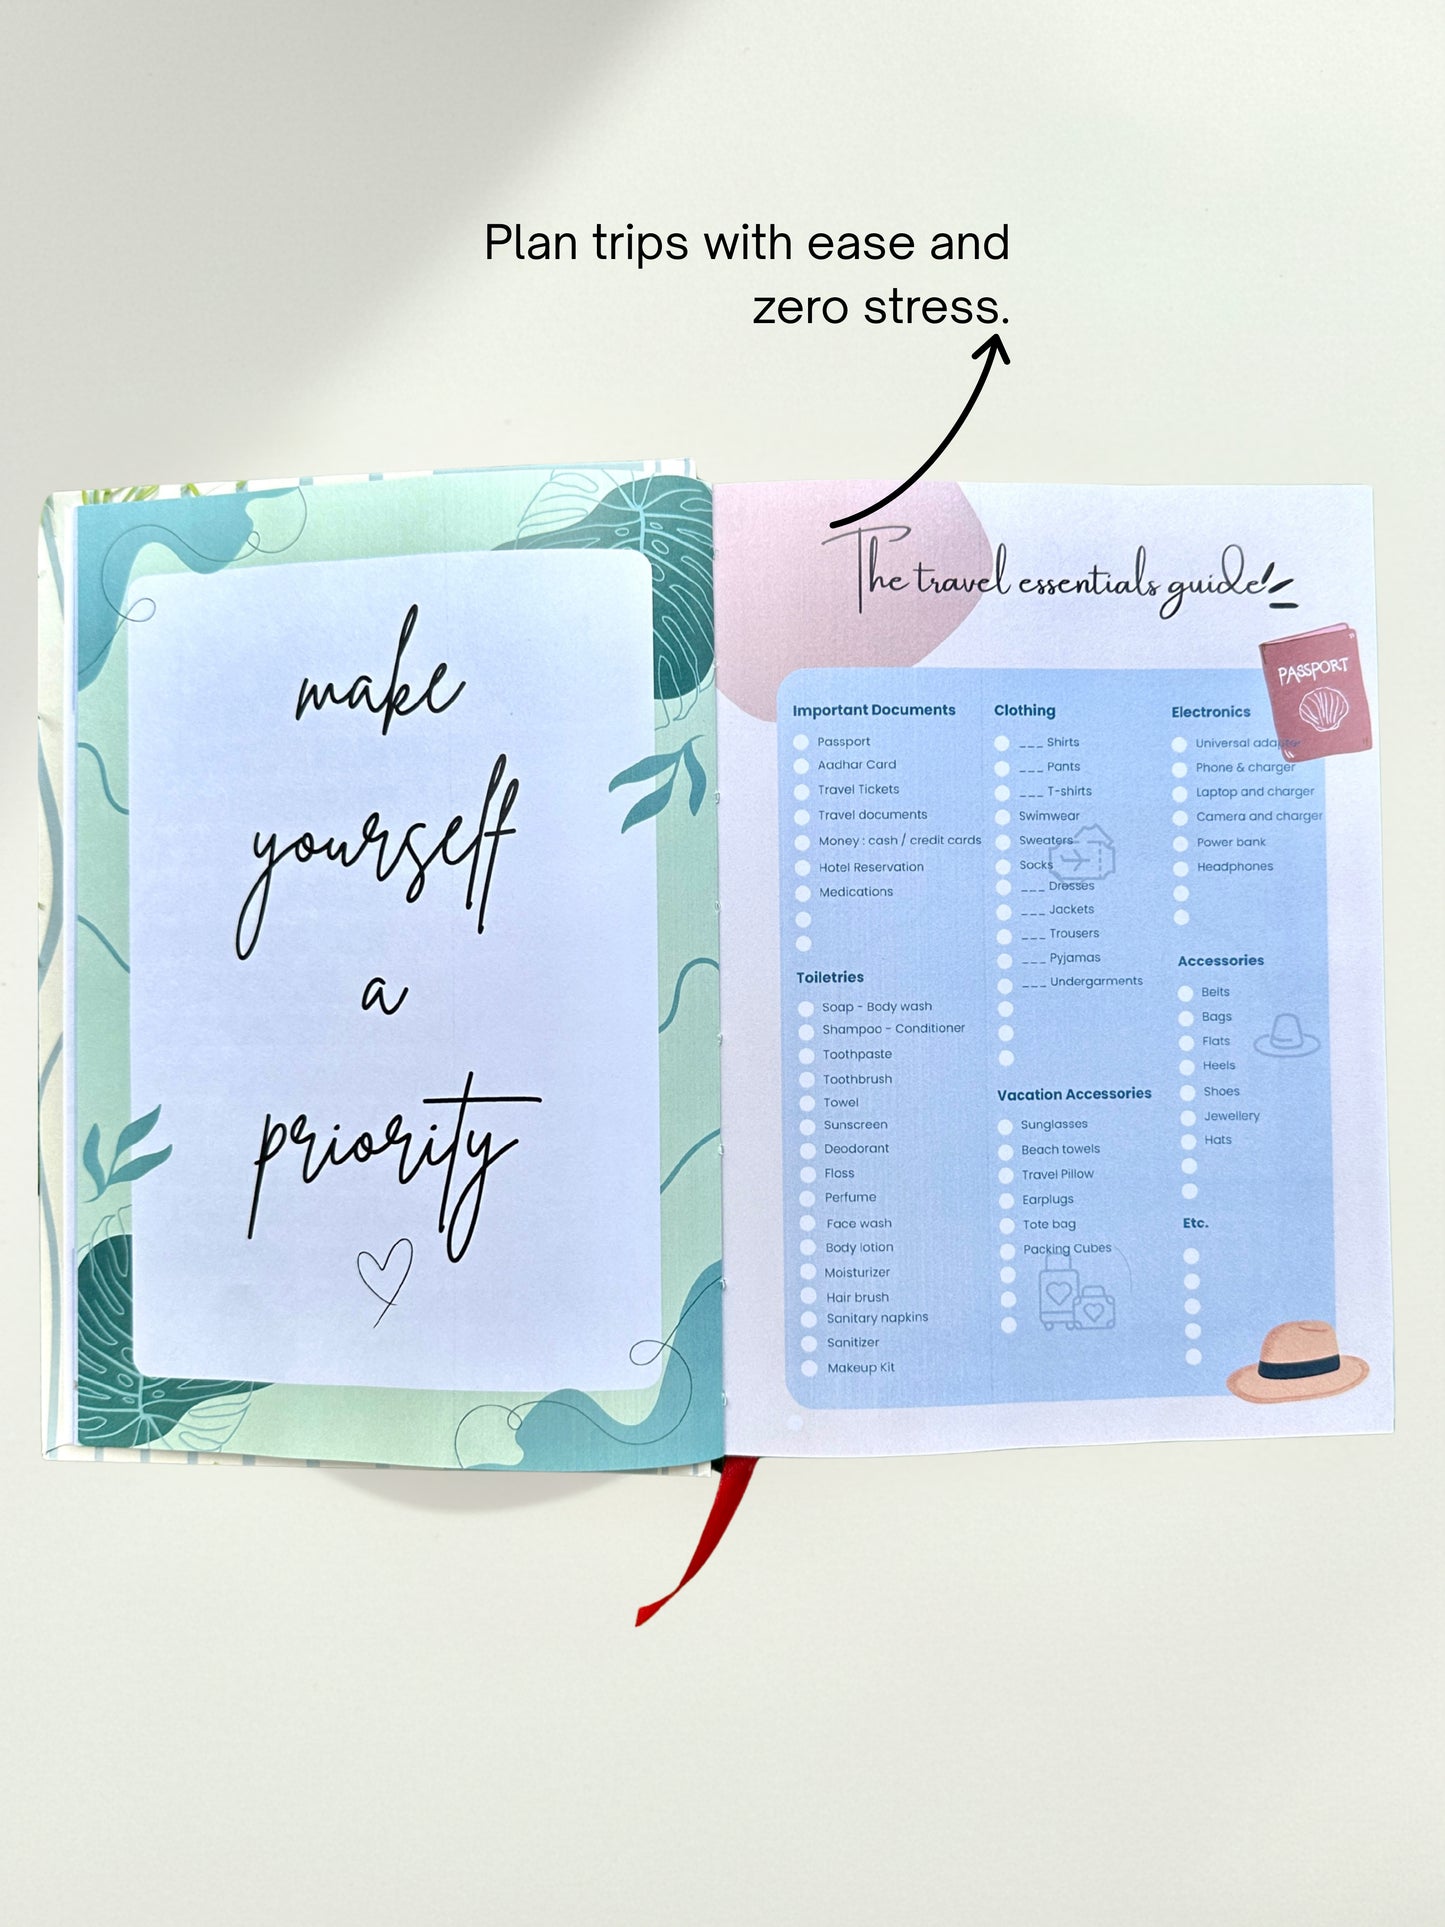 Plan trips with ease and
zero stress.
make
yourself
a
priority
The travel essentials guide
PASSPORT
Important Documents
Passport
Aadhar Card
Travel Tickets
Travel documents
Money : cash / credit cards
Hotel Reservation
Medications
Toiletries
Soap - Body wash
Shampoo - Conditioner
Toothpaste
Toothbrush
Towel
Sunscreen
Deodorant
Floss
Perfume
Face wash
Body lotion
Moisturizer
Hair brush
Sanitary napkins
Sanitizer
Makeup Kit
Clothing
___ Shirts
___ Pants
___ T-shirts
Swimwear
Sweaters
Socks
___ Dresses
___ Jackets
___ Trousers
___ Pyjamas
___ Undergarments
Vacation Accessories
Sunglasses
Beach towels
Travel Pillow
Earplugs
Tote bag
Packing Cubes
Electronics
Universal adapter
Phone & charger
Laptop and charger
Camera and charger
Power bank
Headphones
Accessories
Belts
Bags
Flats
Heels
Shoes
Jewellery
Hats
Etc.